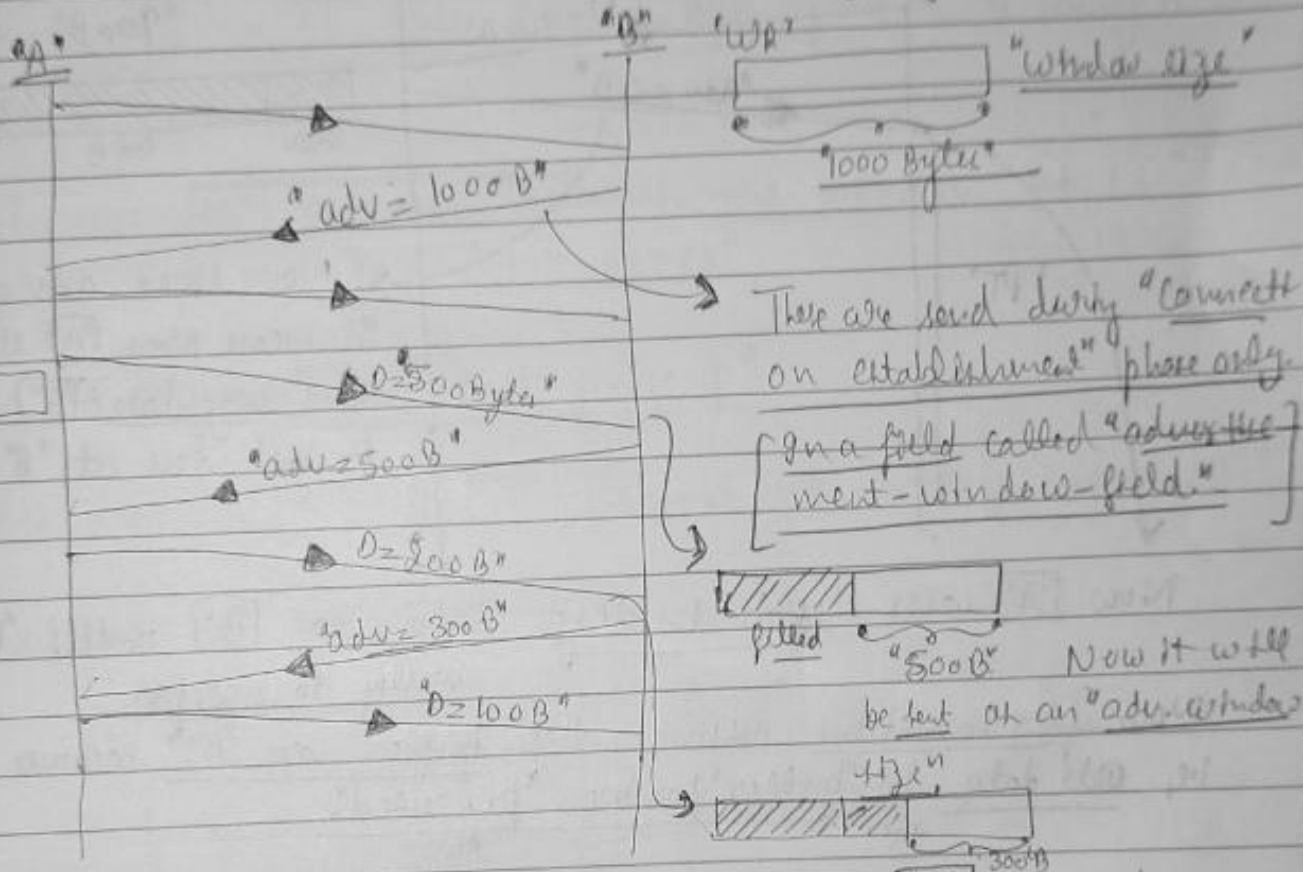 "A"
"B"
"WR"
"window size"
"1000 Bytes"
"adv = 1000B"
These are send during "connecti
on establishment" phase only.
[In a field called "advertise
ment-window-field."]
D=500Bytes"
"adv=500B"
D=200B"
filled
"500B" Now it will
be sent as an "adv. window
size"
"adv= 300B"
"D=100B"
300B